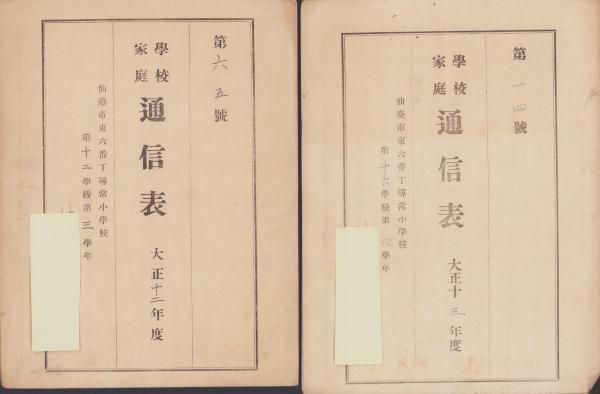 第六五號
學校
家庭
通信表 大正十二年度
仙臺市東六番丁尋常小學校
第十二學級第三學年
第一四號
學校
家庭
通信表 大正十三年度
仙臺市東六番丁尋常小學校
第十六學級第四學年